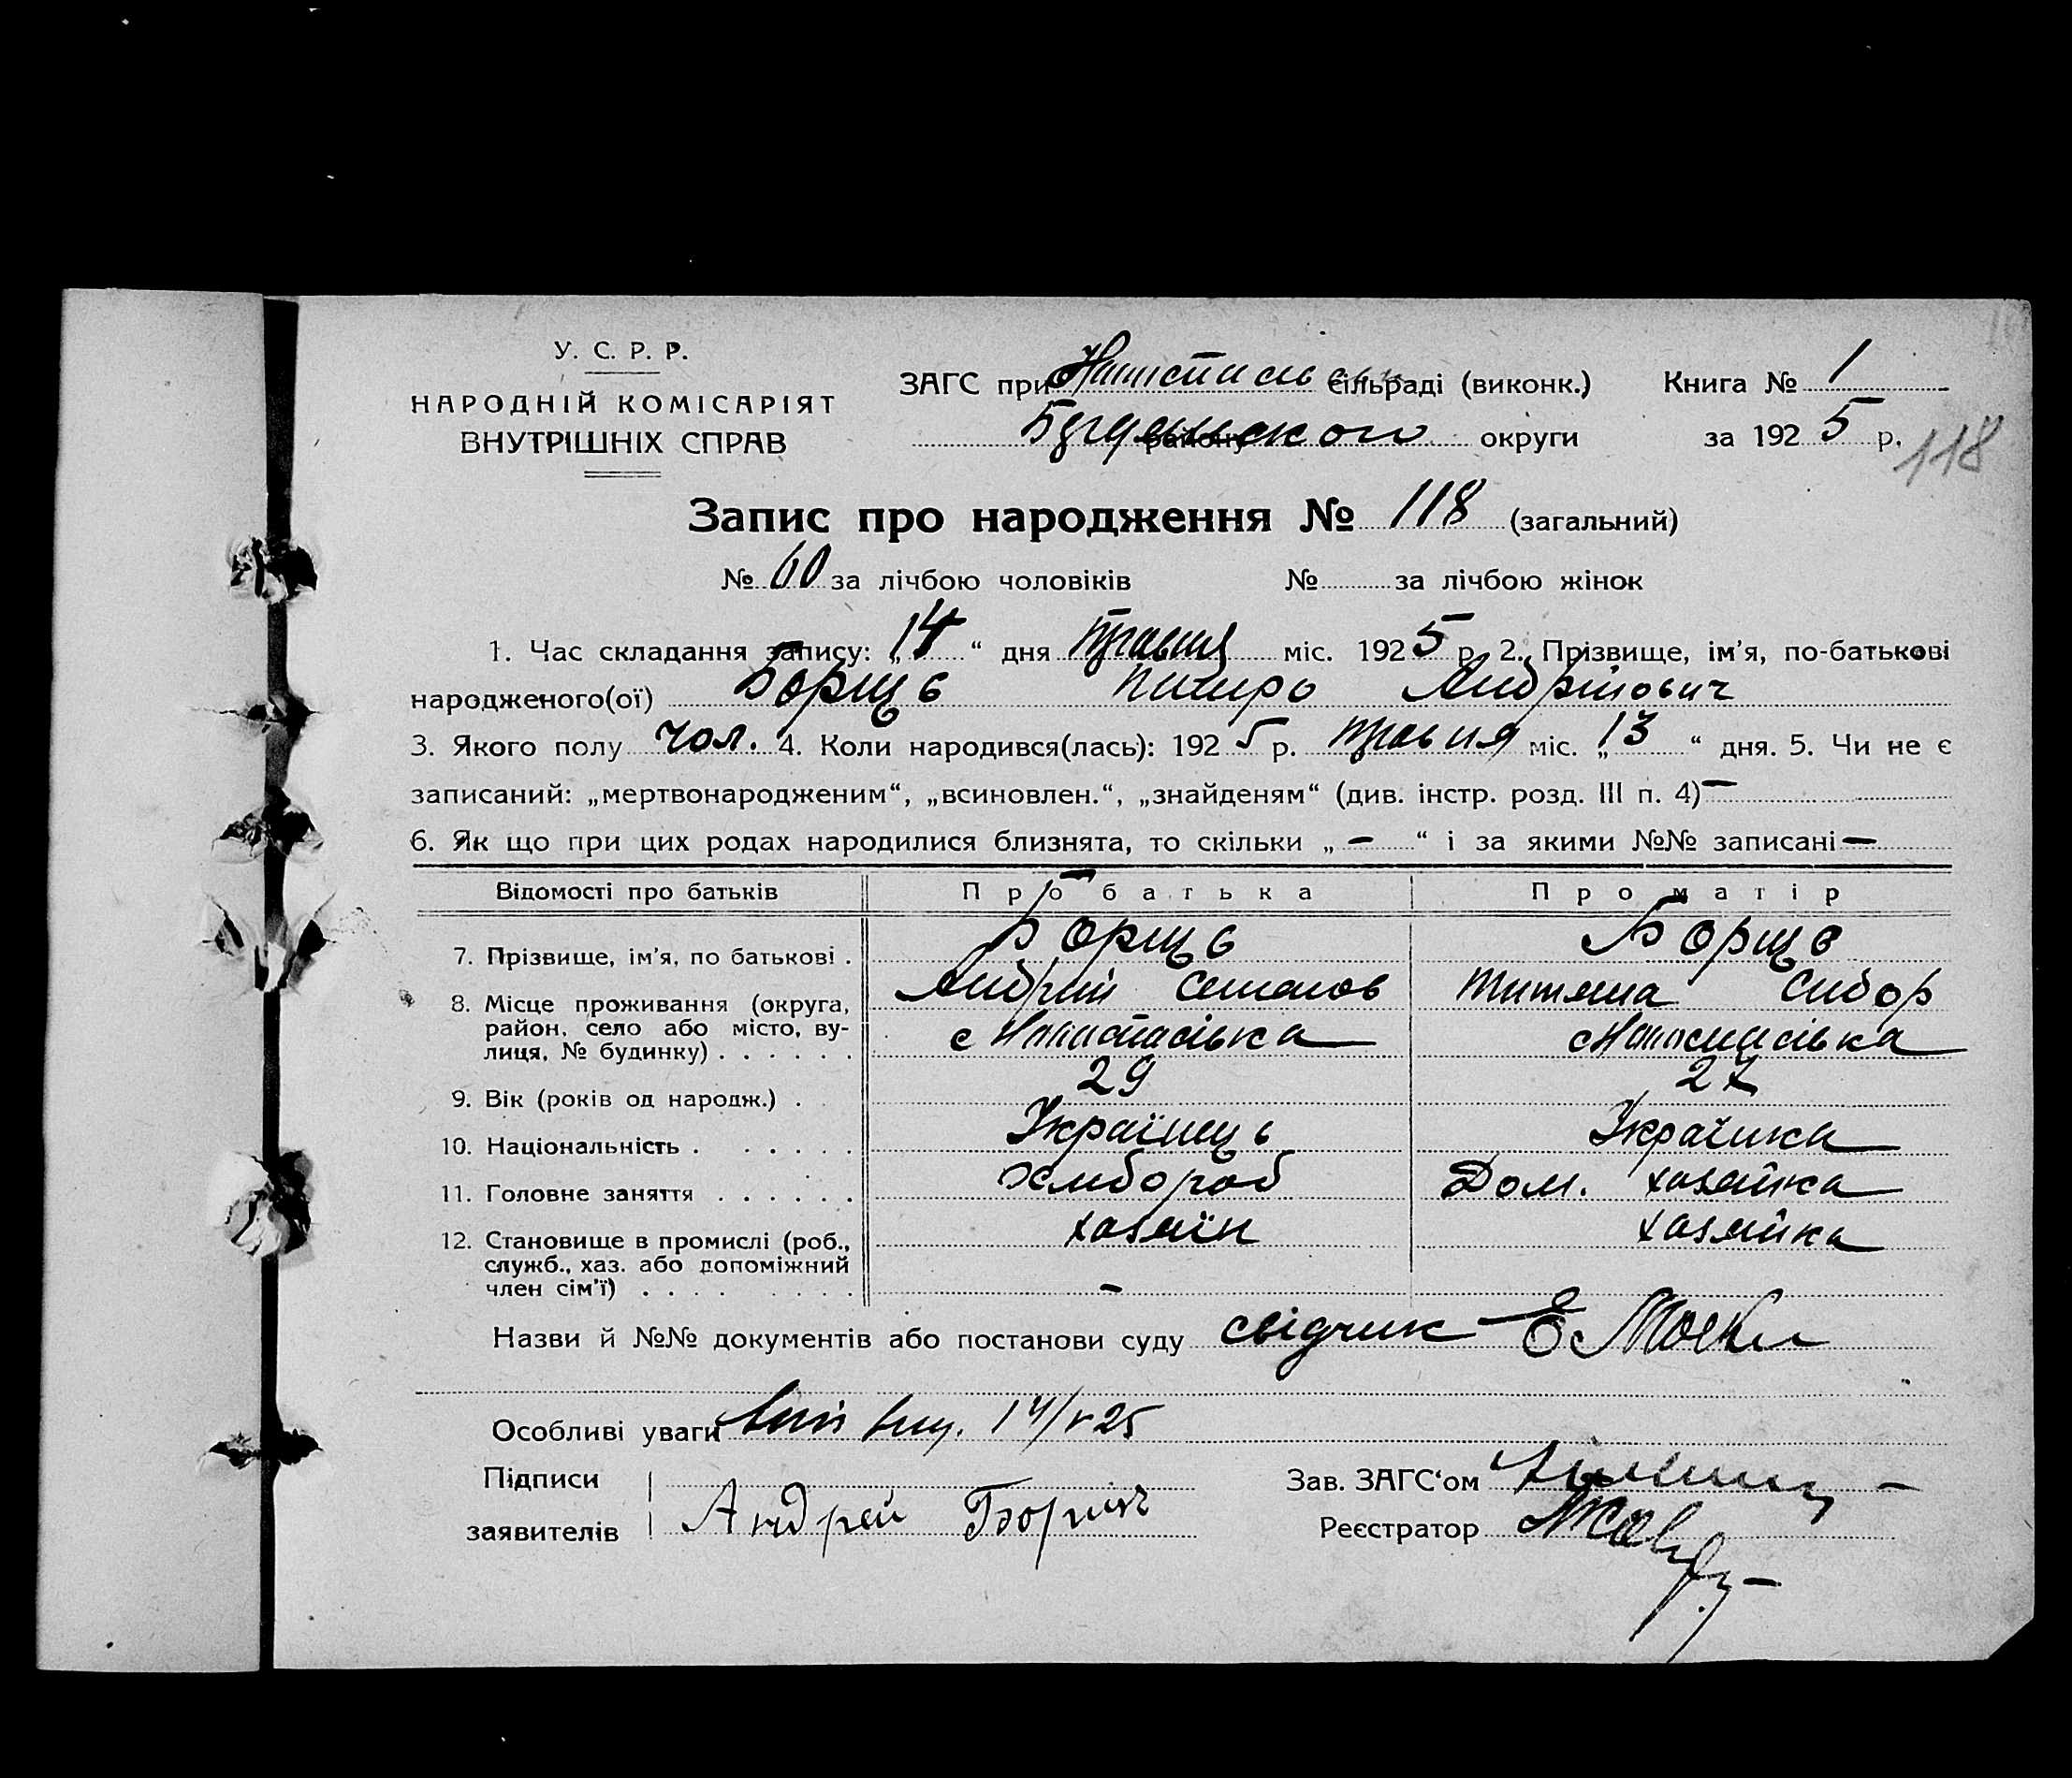 У. С. Р. Р.
НАРОДНІЙ КОМІСАРІЯТ
ВНУТРІШНІХ СПРАВ
ЗАГС при сільраді (виконк.)
району округи
Книга № 1
за 192 5 р.
118
Запис про народження № 118 (загальний)
№ 60 за лічбою чоловіків № за лічбою жінок
1. Час складання запису: „ 14 “ дня травня міс. 192 5 р. 2. Прізвище, ім'я, по-батькові
народженого(ої) Борщь Андрійович
3. Якого полу чол. 4. Коли народився(лась): 192 5 р. травня міс. „ 13 “ дня. 5. Чи не є
записаний: „мертвонародженим“, „всиновлен.“, „знайденям“ (див. інстр. розд. III п. 4) —
6. Як що при цих родах народилися близнята, то скільки „ — “ і за якими №№ записані —
Відомості про батьків Про батька Про матір
7. Прізвище, ім'я, по батькові . Борщь Борщь
Андрій Семенов Титяна Сидор
8. Місце проживання (округа, район, село або місто, вулиця, № будинку) . . . . . . с Настасівка с Настасівка
9. Вік (років од народж.) . 29 27
10. Національність . . . . . . Українець Українка
11. Головне заняття . . . . . . Хлибороб Дом. хазяйка
12. Становище в промислі (роб., служб., хаз. або допоміжний член сім'ї) . . . . . . . . хазяїн хазяйка
—
Назви й №№ документів або постанови суду свідчик
Особливі уваги 14/V 25
Підписи
заявителів Андрей Борщь
Зав. ЗАГС'ом
Реєстратор